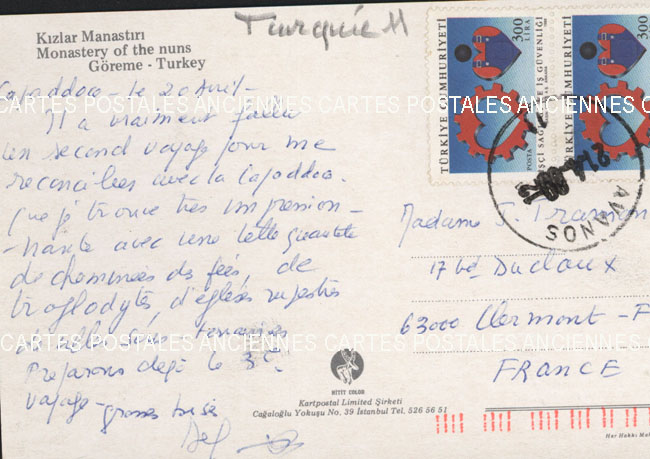 Turquie
Kızlar Manastırı
Monastery of the nuns
Göreme - Turkey
Cappaddoce - le 20 Avril -
Il a vraiment fallu
un second voyage pour me
reconcilier avec la Capaddoce.
Que je trouve très impression-
-nante avec une telle quantité
de cheminées de fées, de
troglodytes, d'églises rupestres
Preparons déjà le 3e
voyage - grosses bises
CARTES POSTALES ANCIENNES CARTES POSTALES ANCIENNES CARTES POSTALES ANCIENNES
CARTES POSTALES ANCIENNES CARTES POSTALES ANCIENNES CARTES POSTALES ANCIENNES
TÜRKİYE CUMHURİYETİ
POSTA
300 LİRA
İŞÇİ SAĞLIĞI VE İŞ GÜVENLİĞİ
TÜRKİYE CUMHURİYETİ
300 LİRA
AVANOS
Madame J.
17 bd Duclaux
63000 Clermont - F
FRANCE
HITIT COLOR
Kartpostal Limited Şirketi
Cağaloğlu Yokuşu No. 39 İstanbul Tel, 526 56 51
Her Hakkı